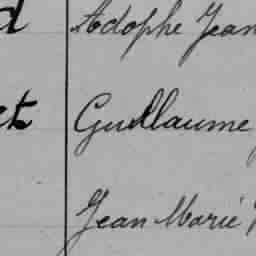 d Adophe Jean
et Guillaume
Jean Marie